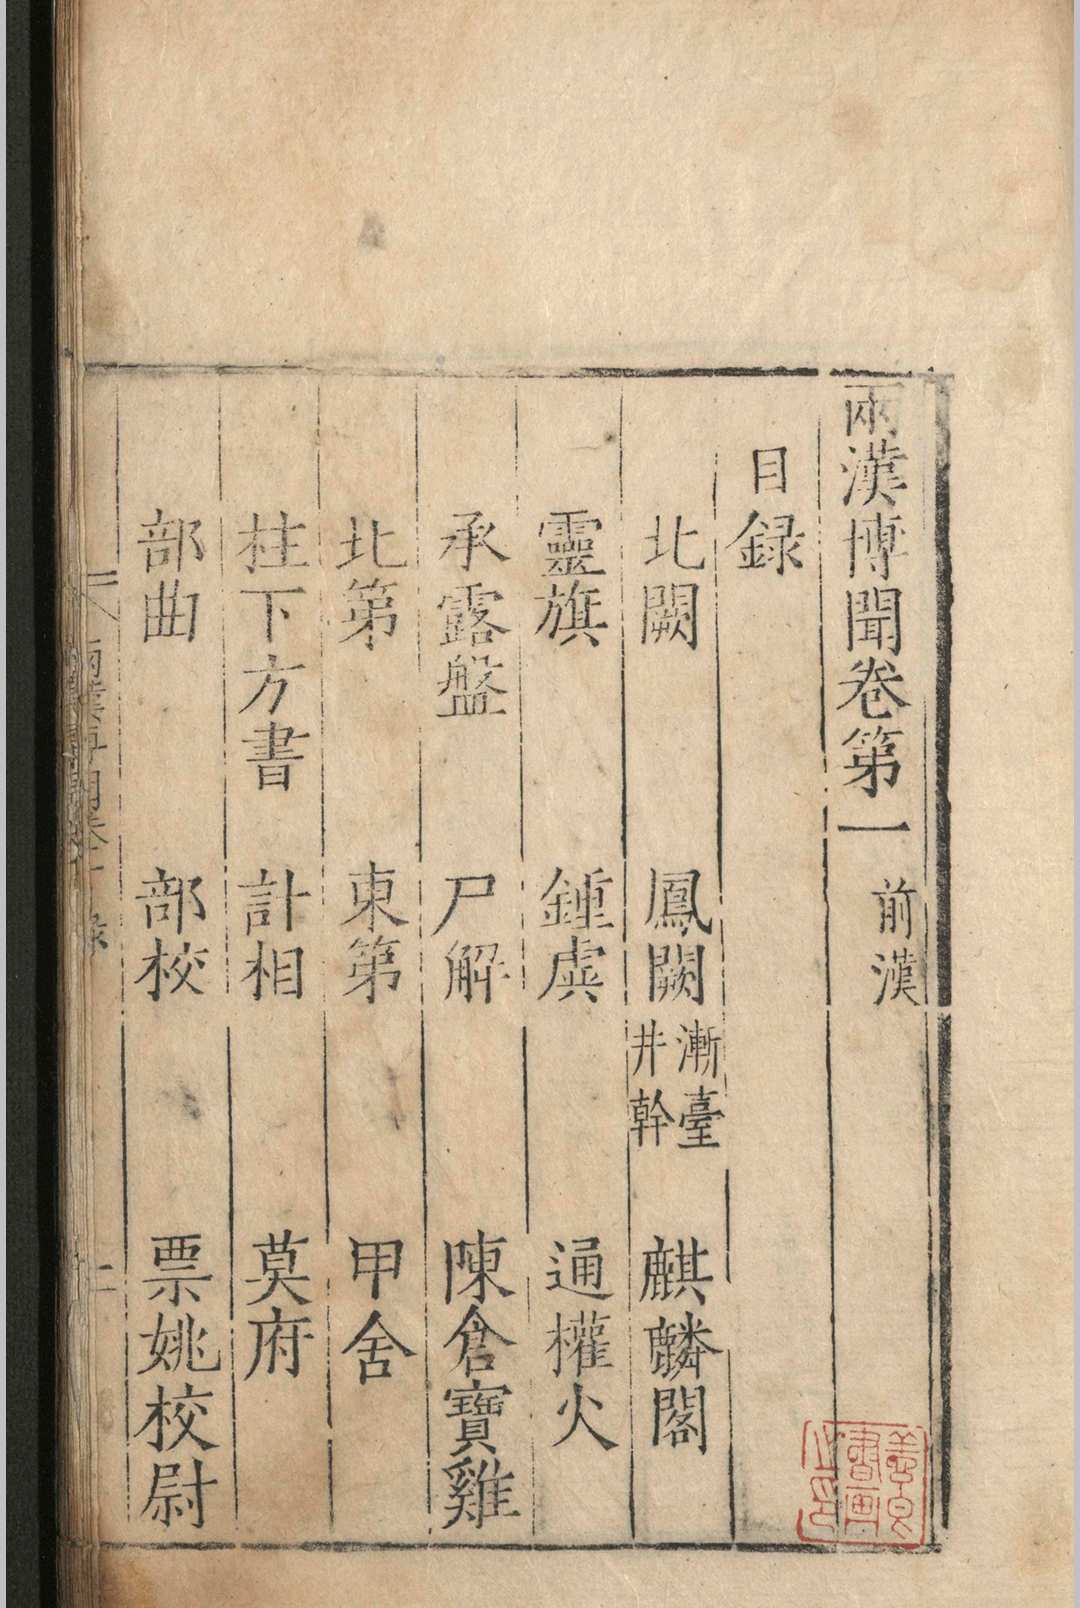 兩漢博聞卷第一 前漢
目録
北闕 鳳闕 漸臺井幹 麒麟閣
靈旗 鍾虡 通權火
承露盤 尸解 陳倉寶雞
北第 東第 甲舍
柱下方書 計相 莫府
部曲 部校 票姚校尉